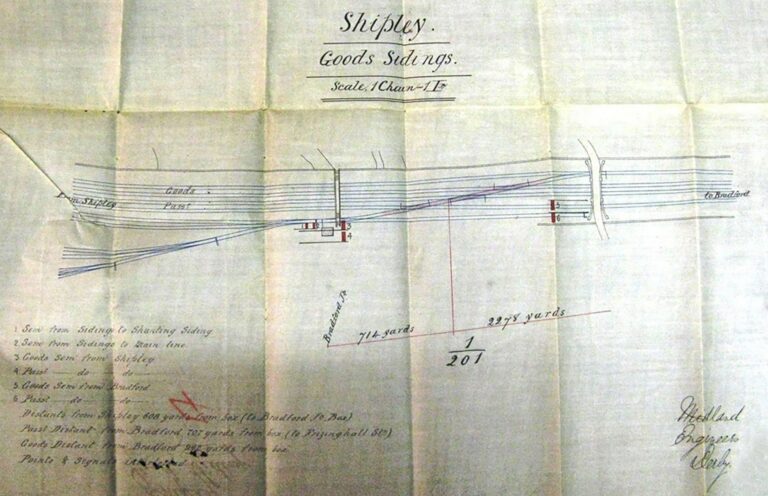 Shipley.
Goods Sidings.
Scale, 1 Chain = 1 In
From Shipley
Goods
Passt
to Bradford
1 2
3
4
5
6
Bradford Jn
714 yards
2278 yards
1
201
1 Sem from Siding to Shunting Siding
2 Sem from Sidings to Main line
3 Goods Sem from Shipley
4 Passt do do
5 Goods Sem from Bradford
6 Passt do do
Distants from Shipley 608 yards from box (to Bradford Jn Box)
Passt Distant from Bradford 707 yards from box (to Frizinghall Stn)
Goods Distant from Bradford yards from box
Points & Signals
N
Midland
Engineers
Derby